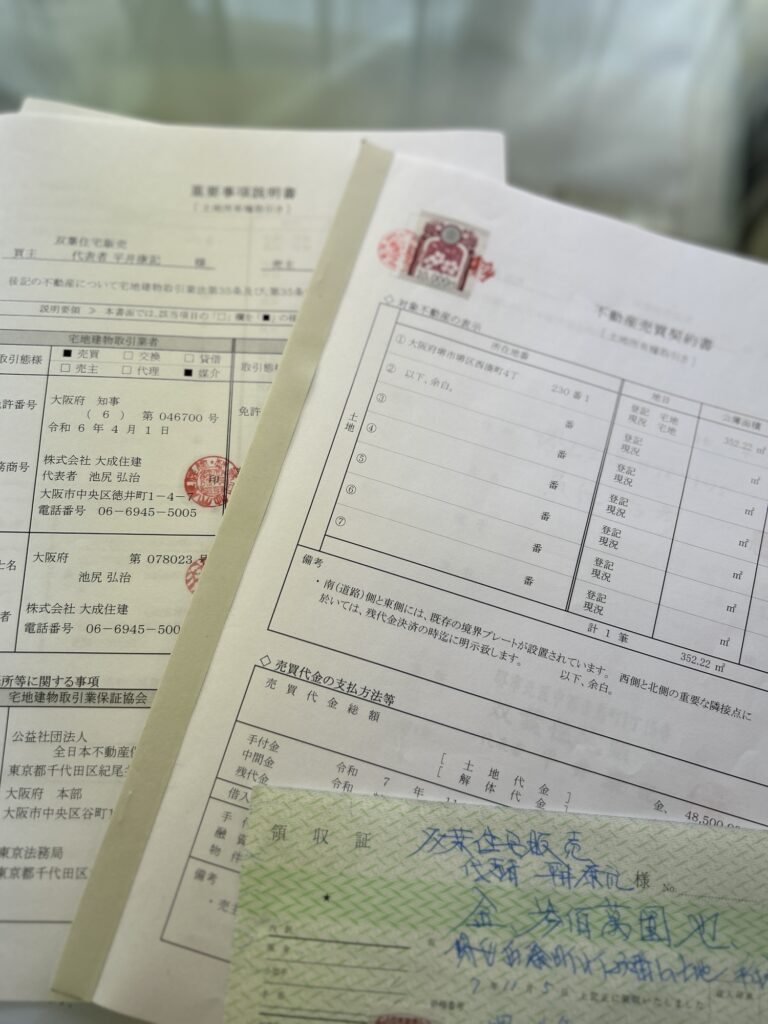 重要事項説明書
[土地所有権取引き]
双葉住宅販売
買主 代表者 平井康記 様
売主
後記の不動産について宅地建物取引業法第35条及び、第35条
説明要領 ≫ 本書面では、該当項目の「□」欄を「■」の様
宅地建物取引業者
取引態様 ■ 売買 □ 交換 □ 貸借
□ 売主 □ 代理 ■ 媒介
取引態様
免許番号 大阪府 知事
( 6 ) 第 046700 号
令和 6 年 4 月 1 日
免許
商号 株式会社 大成住建
代表者 池尻 弘治
大阪市中央区徳井町1-4-7
電話番号 06-6945-5005
印
士名 大阪府 第 078023 号
池尻 弘治
者 株式会社 大成住建
電話番号 06-6945-500
所等に関する事項
宅地建物取引業保証協会
公益社団法人
全日本不動産
東京都千代田区紀尾
大阪府 本部
大阪市中央区谷町1
東京法務局
東京都千代田区
不動産売買契約書
[土地所有権取引き]
◇ 対象不動産の表示
所在地番 地目 公簿面積
土地
① 大阪府堺市堺区西湊町4丁 230 番 1 登記 宅地 現況 宅地 352.22 ㎡
② 以下、余白。 番 登記 現況 ㎡
③ 番 登記 現況 ㎡
④ 番 登記 現況 ㎡
⑤ 番 登記 現況 ㎡
⑥ 番 登記 現況 ㎡
⑦ 番 登記 現況 ㎡
計 1 筆 352.22 ㎡
備考
・南(道路)側と東側には、既存の境界プレートが設置されています。 西側と北側の重要な隣接点に
於いては、残代金決済の時迄に明示致します。 以下、余白。
◇ 売買代金の支払方法等
売買代金総額
[ 土地代金 ]
[ 解体代金 ]
金、 48,500,0
手付金 令和 7 年 11
中間金 令和
残代金
借入
手付
融資
物件
備考
・売主
領収証
双葉住宅販売
代表者 平井康記 様 No.
金、参佰萬圓也、
7 年 11 月 5 日 上記正に領収いたしました